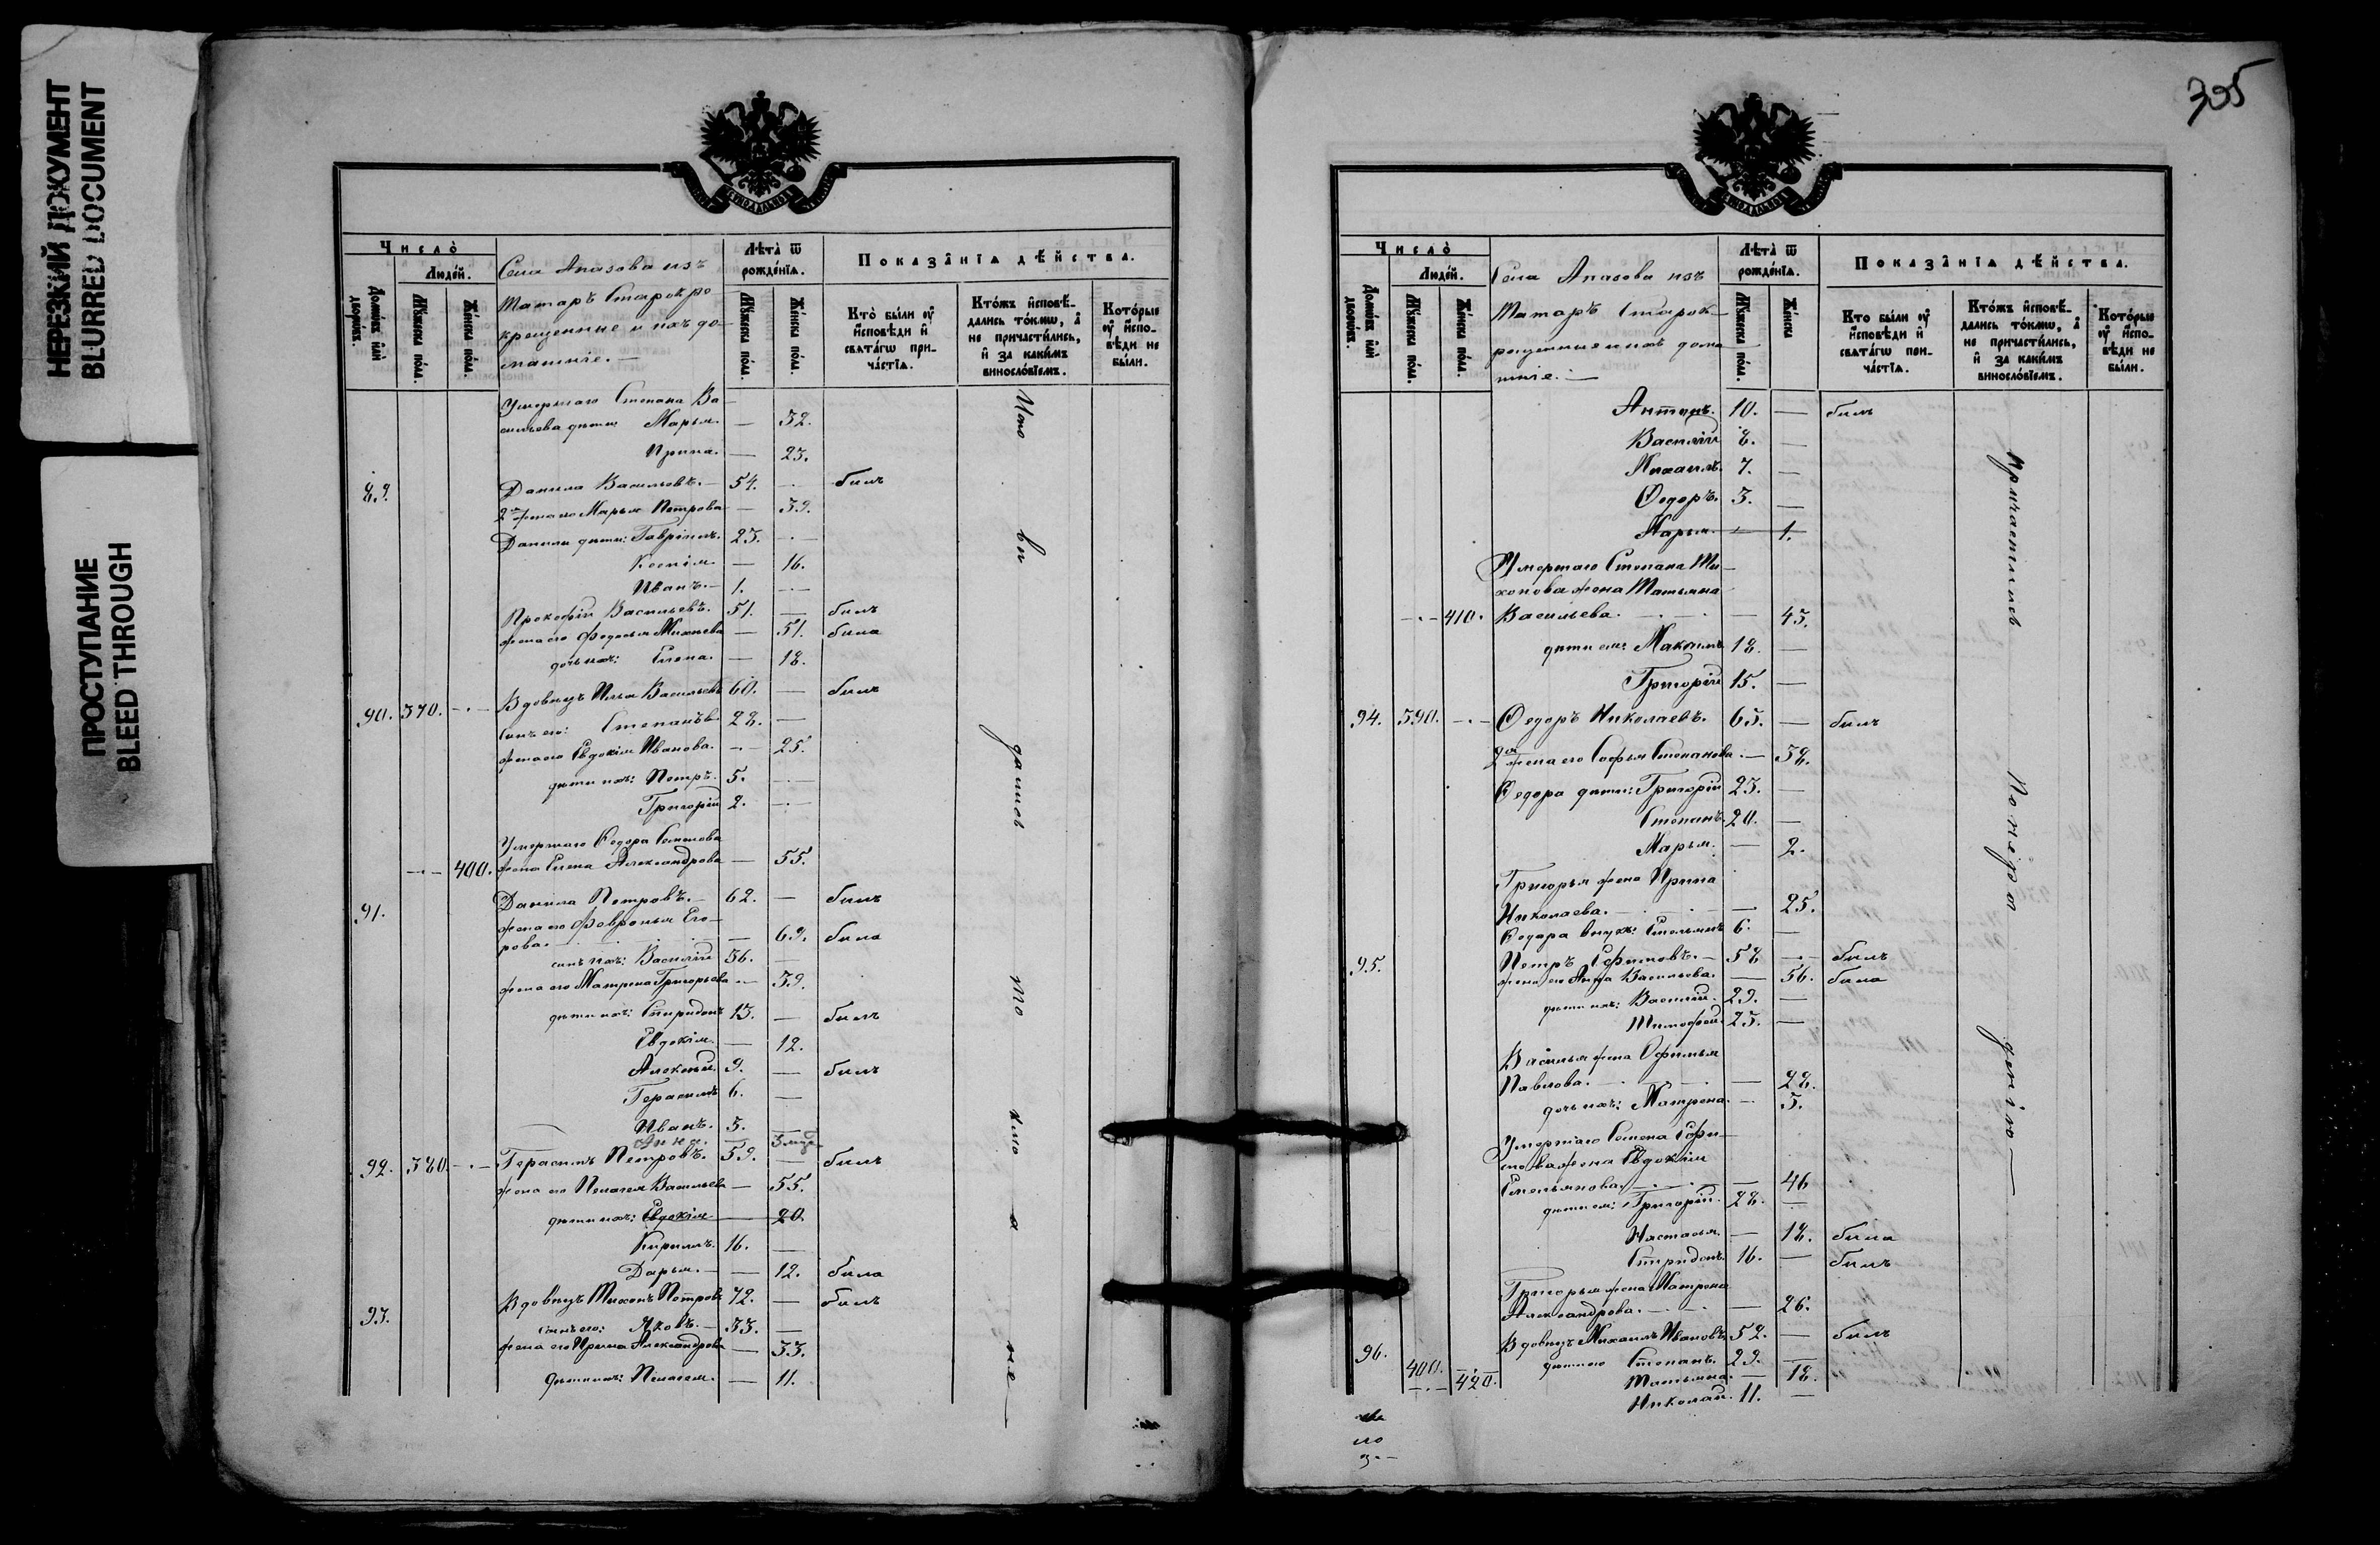 НЕРЕЗКИЙ ДОКУМЕНТ
BLURRED DOCUMENT
ПРОСТУПАНИЕ
BLEED THROUGH
Число̀
Люде́й.
Домѡ́въ и҆лѝ дворѡ́въ.
Мꙋ́жеска по́ла.
Же́нска по́ла.
Села Апазова изъ
Татаръ Старокре
крещенные и ихъ до-
машніе.—
Лѣта̀ ѿ
рожде́нїѧ.
Мꙋ́жеска по́ла.
Же́нска по́ла.
Показа̑нїѧ дѣ́йства.
Кто̀ бы́ли ᲂу҆ и҆сповѣ́ди и҆ свѧта́гѡ причⷭ҇тїѧ.
Кто́жъ и҆сповѣ́дались то́кмѡ, а҆ не причасти́лись, и҆ за каки́мъ винослѡ́вїемъ.
Кото́рые ᲂу҆ и҆сповѣ́ди не бы́ли.
Умершаго Степана Ва-
сильева дѣти Марья. — 32.
Ирина. — 23.
89. Данила Васильевъ. — 54. — былъ
2я жена его Марья Петрова — 39.
Данилы дѣти: Гавріилъ. 23. —
Ксенія — 16.
Иванъ. — 1. —
Прокофій Васильевъ. 51. — былъ
жена его Федосья Михеева — 51. была
дочь ихъ: Елена. — 18.
90. 370. — Вдовецъ Илья Васильевъ 60. — былъ
Сынъ его: Степанъ 28. —
жена его Евдокія Иванова. — 25.
дѣти ихъ: Петръ. 5. —
Григорій 2. —
Умершаго Федора
— 400. жена Елена Александрова — 55.
91. Данила Петровъ. — 62. — былъ
жена его Февронья Его-
рова. — 69. была
сынъ ихъ: Василій 36. —
жена его Матрена Григорьева — 39.
дѣти ихъ: Спиридонъ 13. — былъ
Евдокія — 12.
Алексѣй. 9. — былъ
Герасимъ 6. —
Иванъ. 3. —
Анна. — 3 мѣс.
92. 380. — Герасимъ Петровъ. 59. — былъ
жена его Пелагея Васильева — 55.
дѣти ихъ: Евдокія — 20.
Кирилъ. 16. —
Дарья. — 12. была
93. Вдовецъ Тихонъ Петровъ 72. — былъ
сынъ его: Яковъ. — 33. —
жена его Ирина Александрова — 33.
Дѣти ихъ: Пелагея. — 11.
Испо вѣ дались то кмо а не
305
Число̀
Люде́й.
Домѡ́въ и҆лѝ дворѡ́въ.
Мꙋ́жеска по́ла.
Же́нска по́ла.
Села Апазова изъ
Татаръ Старок-
рещенные ихъ дома
шніе.—
Лѣта̀ ѿ
рожде́нїѧ.
Мꙋ́жеска по́ла.
Же́нска
Показа̑нїѧ дѣ́йства.
Кто̀ бы́ли ᲂу҆ и҆сповѣ́ди и҆ свѧта́гѡ причⷭ҇тїѧ.
Кто́жъ и҆сповѣ́дались то́кмѡ, а҆ не причасти́лись, и҆ за каки́мъ винослѡ́вїемъ.
Кото́рые ᲂу҆ и҆сповѣ́ди не бы́ли.
Антонъ. 10. — былъ
Василій 8. —
Михаилъ. 7. —
Ѳедоръ. 3. —
Марья. — 1.
Умершаго Степана Ти-
хонова жена Татьяна
— 410. Васильева. — 45.
дѣти ея: Максимъ 18. —
Григорій 15. —
94. 390. — Ѳедоръ Николаевъ. 65. — былъ
2я жена его Софья Степанова. — 58.
Ѳедора дѣти: Григорій 23. —
Степанъ. 20. —
Марья. — 2.
Григорья жена Ирина
Николаева. — 25.
Ѳедора внукъ: Емельянъ 6. —
95. Петръ Ефимовъ. — 58 — былъ
жена его Анна Васильева. — 56. была
дѣти ихъ: Василій. 29. —
Тимофей. 23. —
Василья жена Офимья
Павлова. — 28.
дочь ихъ: Матрена. — 3.
Умершаго Семена Ефи-
мова жена Евдокія
Емельянова. — 46
дѣти ея: Григорій. 28. —
Настасья. — 18. была
Спиридонъ. 16. — былъ
Григорья жена Матрена
Александрова. — 26.
96. Вдовецъ Михаилъ Ивановъ 52. — былъ
400. дѣти его Степанъ. 29. —
— 420. Татьяна. — 18.
Николай. 11. —
причастились По нерадѣнію —